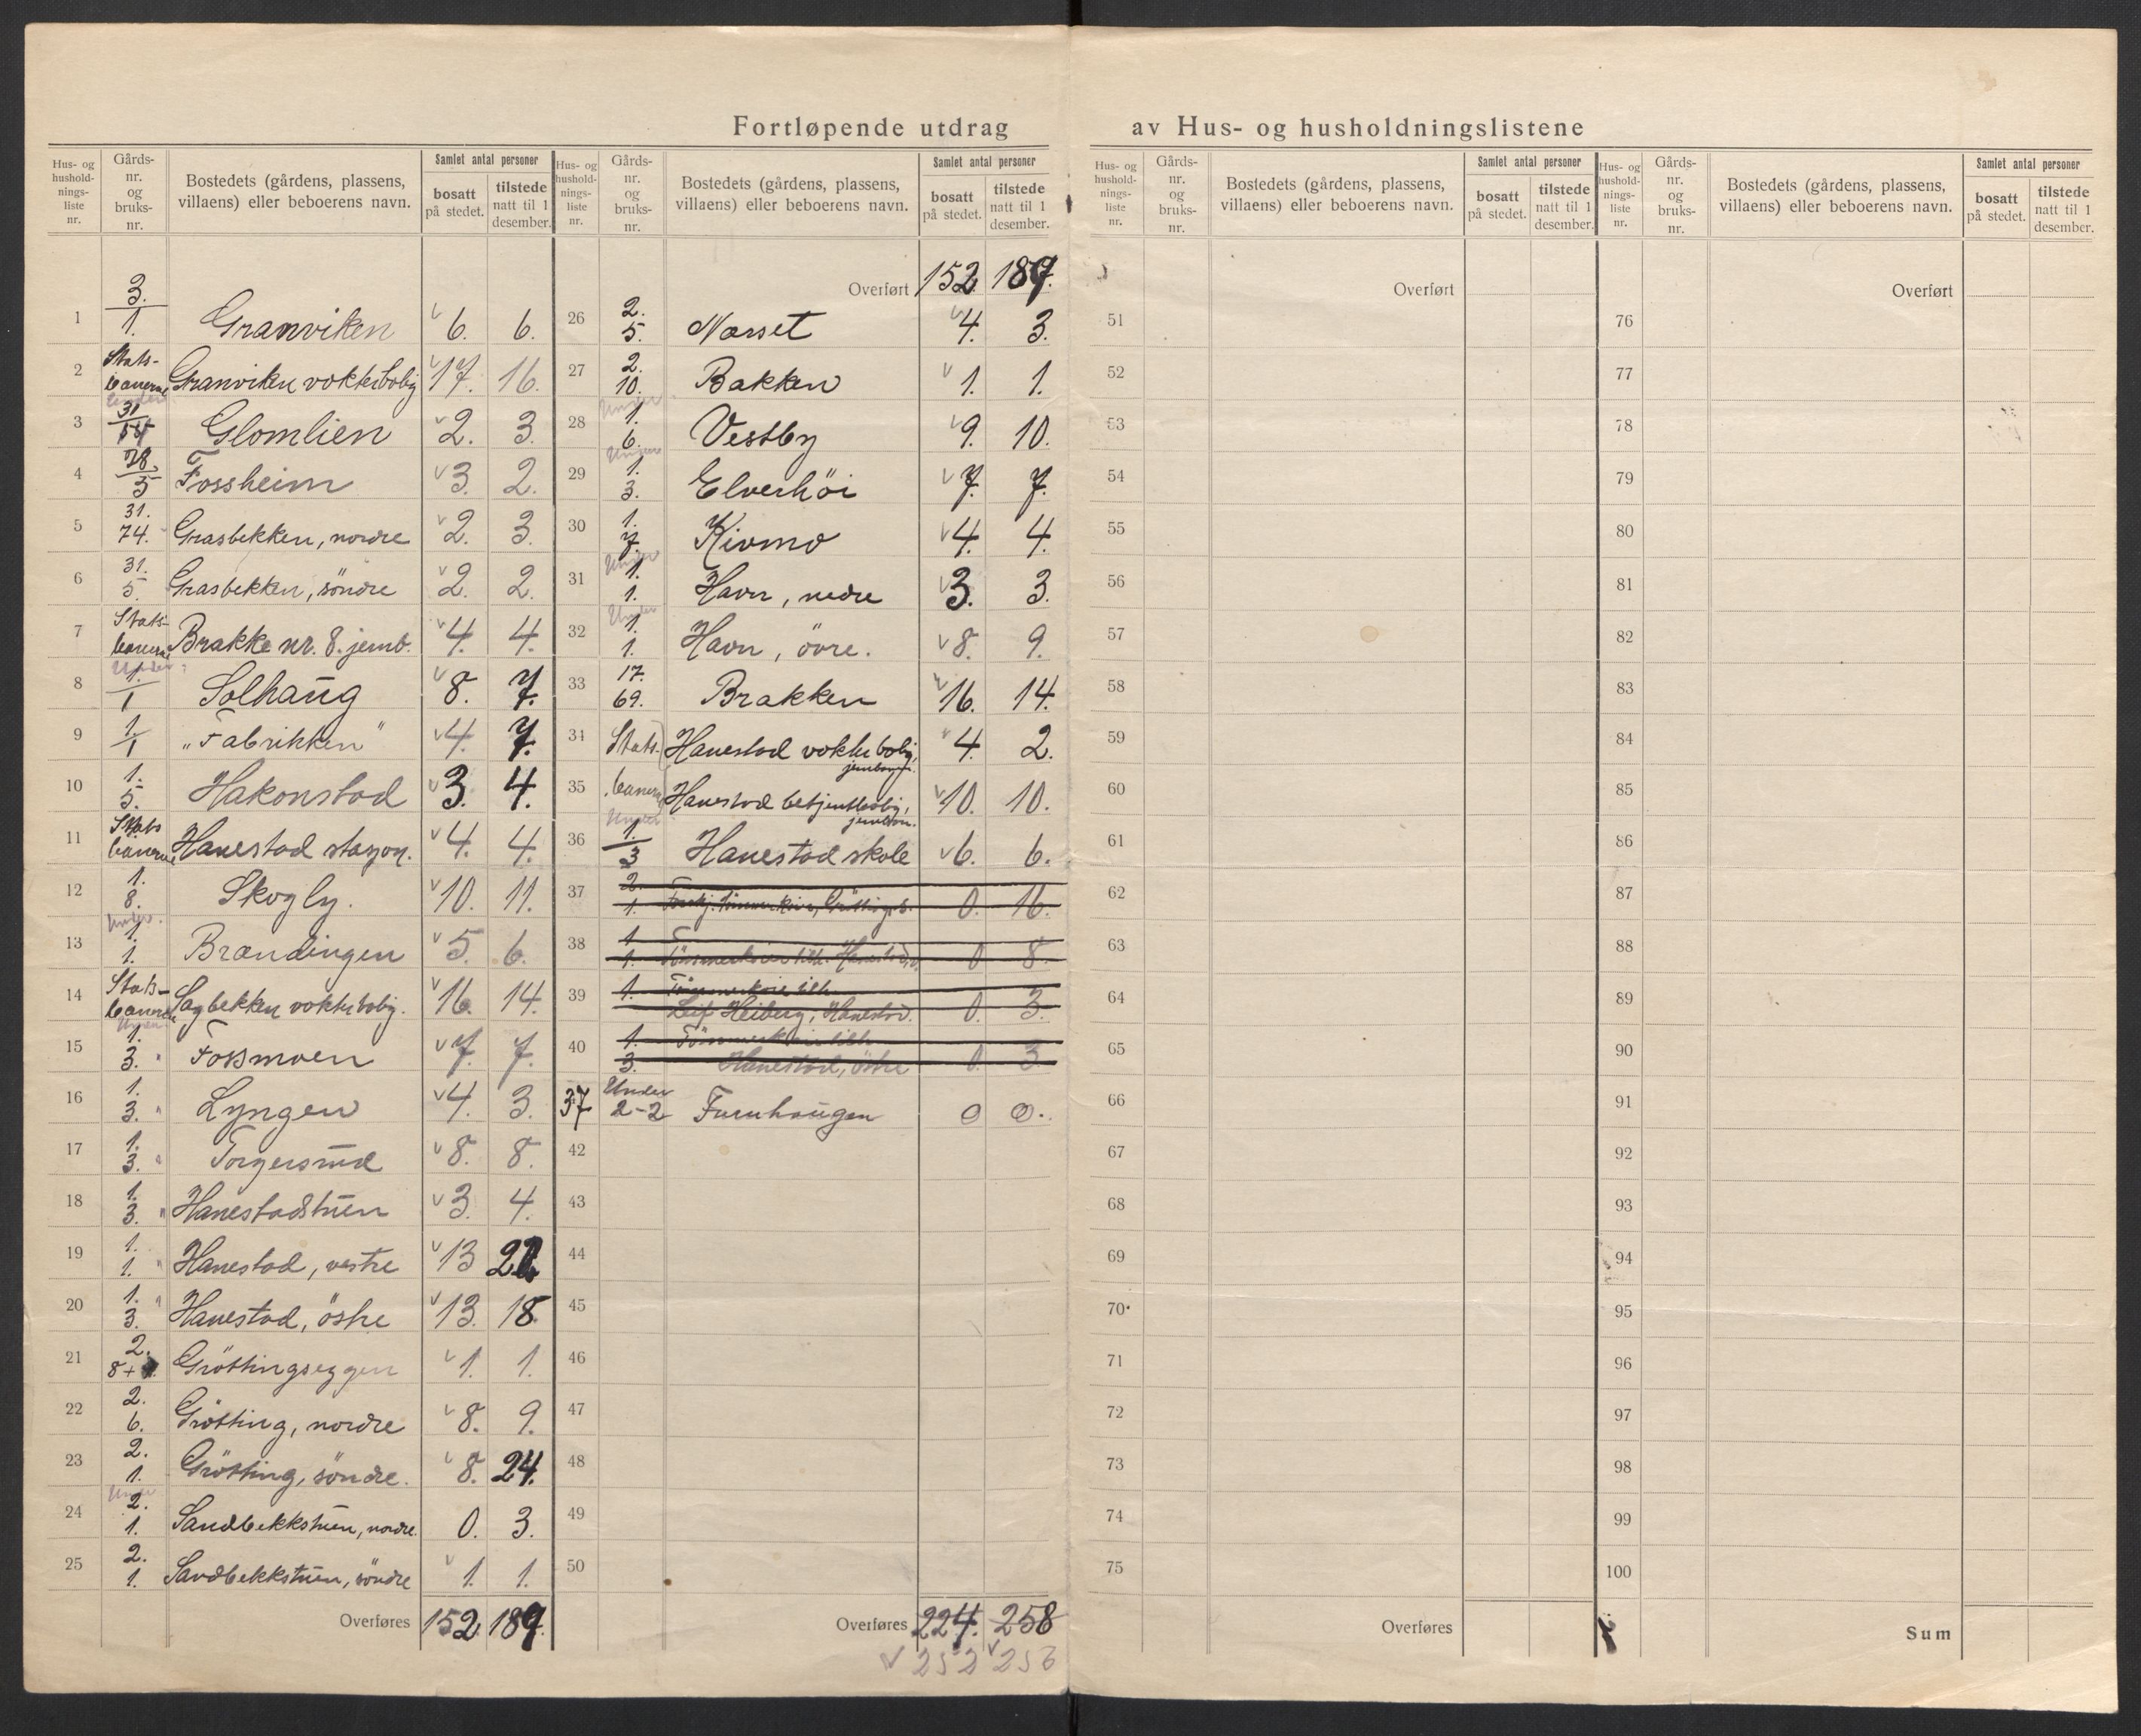 Fortløpende utdrag av Hus- og husholdningslistene
Hus- og hushold-nings-liste nr. Gårds-nr. og bruks-nr. Bostedets (gårdens, plassens, villaens) eller beboerens navn. Samlet antal personer bosatt på stedet. tilstede natt til 1 desember.
1 3. 1. Granviken 6. 6.
2 Stats-banerne Granviken vokterbolig 17. 16.
3 Under 31 14 Glomlien 2. 3.
4 28. 5 Fossheim 3. 2.
5 31. 74. Grasbekken, nordre 2. 3.
6 31. 5. Grasbekken, söndre 2. 2.
7 Stats-banerne Brakke nr. 8. jernb. 4. 4.
8 Under 1. 1 Solhaug 8. 7.
9 1. 1 "Fabrikken" 4. 7.
10 1. 5. Hakonstad 3. 4.
11 Stats banerne Hanestad stasjon. 4. 4.
12 1. 8. Skogly. 10. 11.
13 Under. 1. 1. Brændingen 5. 6.
14 Stats-banerne Sagbekken vokterbolig. 16. 14.
15 Under 1. 3. " Fossmoen 7. 7.
16 1. 3. " Lyngen 4. 3.
17 1. 3. " Torgersrud 8. 8.
18 1. 3. " Hanestadstuen 3. 4.
19 1. 1. " Hanestad, vestre 13
20 1. 3. " Hanestad, östre 13. 18
21 2. 8+ Gröttingseggen 1. 1.
22 2. 6. Grötting, nordre 8. 9.
23 2. 1. Grötting, söndre. 8. 24.
24 Under 2. 1. Sandbekkstuen, nordre. 0. 3.
25 2. 1. Sandbekkstuen, söndre 1. 1.
Overføres 152. 189.
Hus- og hushold-nings-liste nr. Gårds-nr. og bruks-nr. Bostedets (gårdens, plassens, villaens) eller beboerens navn. Samlet antal personer bosatt på stedet. tilstede natt til 1 desember.
Overført 152. 189.
26 2. 5. Næsset 4. 3.
27 2. 10. Bakken 1. 1.
28 Under 1. 6. Vestby 9. 10.
29 Under 1. 3. Elverhöi 7. 7.
30 1. 7. Kivmo 4. 4.
31 Under 1. 1. Havn, nedre 3. 3.
32 Under 1. 1. Havn, övre. 8. 9.
33 17. 69. Brakken 16. 14.
34 Stats- Hanestad vokterbolig, jernban. 4. 2.
35 banerne Hanestad betjentbolig, jernban. 10. 10.
36 Under 1. 3 Hanestad skole 6. 6.
37 2. 1. 0. 16.
38 1 1. Hanestad, v. 0 8.
39 1. Tömmerkoie tilh. Leif Heiberg, Hanestad. 0. 3.
40 1. 3. Tömmerkoie tilh. Hanestad, östre 0. 3
37 Under 2-2 Furuhaugen 0 0.
42
43
44
45
46
47
48
49
50
Overføres 224. 258
252 256
Hus- og hushold-nings-liste nr. Gårds-nr. og bruks-nr. Bostedets (gårdens, plassens, villaens) eller beboerens navn. Samlet antal personer bosatt på stedet. tilstede natt til 1 desember.
Overført
51
52
53
54
55
56
57
58
59
60
61
62
63
64
65
66
67
68
69
70
71
72
73
74
75
Overføres
Hus- og hushold-nings-liste nr. Gårds-nr. og bruks-nr. Bostedets (gårdens, plassens, villaens) eller beboerens navn. Samlet antal personer bosatt på stedet. tilstede natt til 1 desember.
Overført
76
77
78
79
80
81
82
83
84
85
86
87
88
89
90
91
92
93
94
95
96
97
98
99
100
Sum